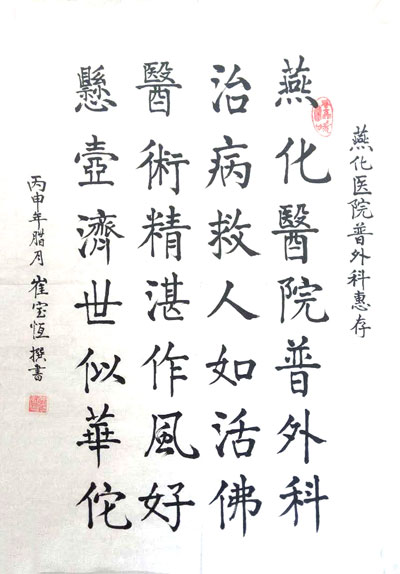 燕化医院普外科惠存
燕化醫院普外科
治病救人如活佛
醫術精湛作風好
懸壺濟世似華佗
丙申年腊月 崔宝恆 撰書